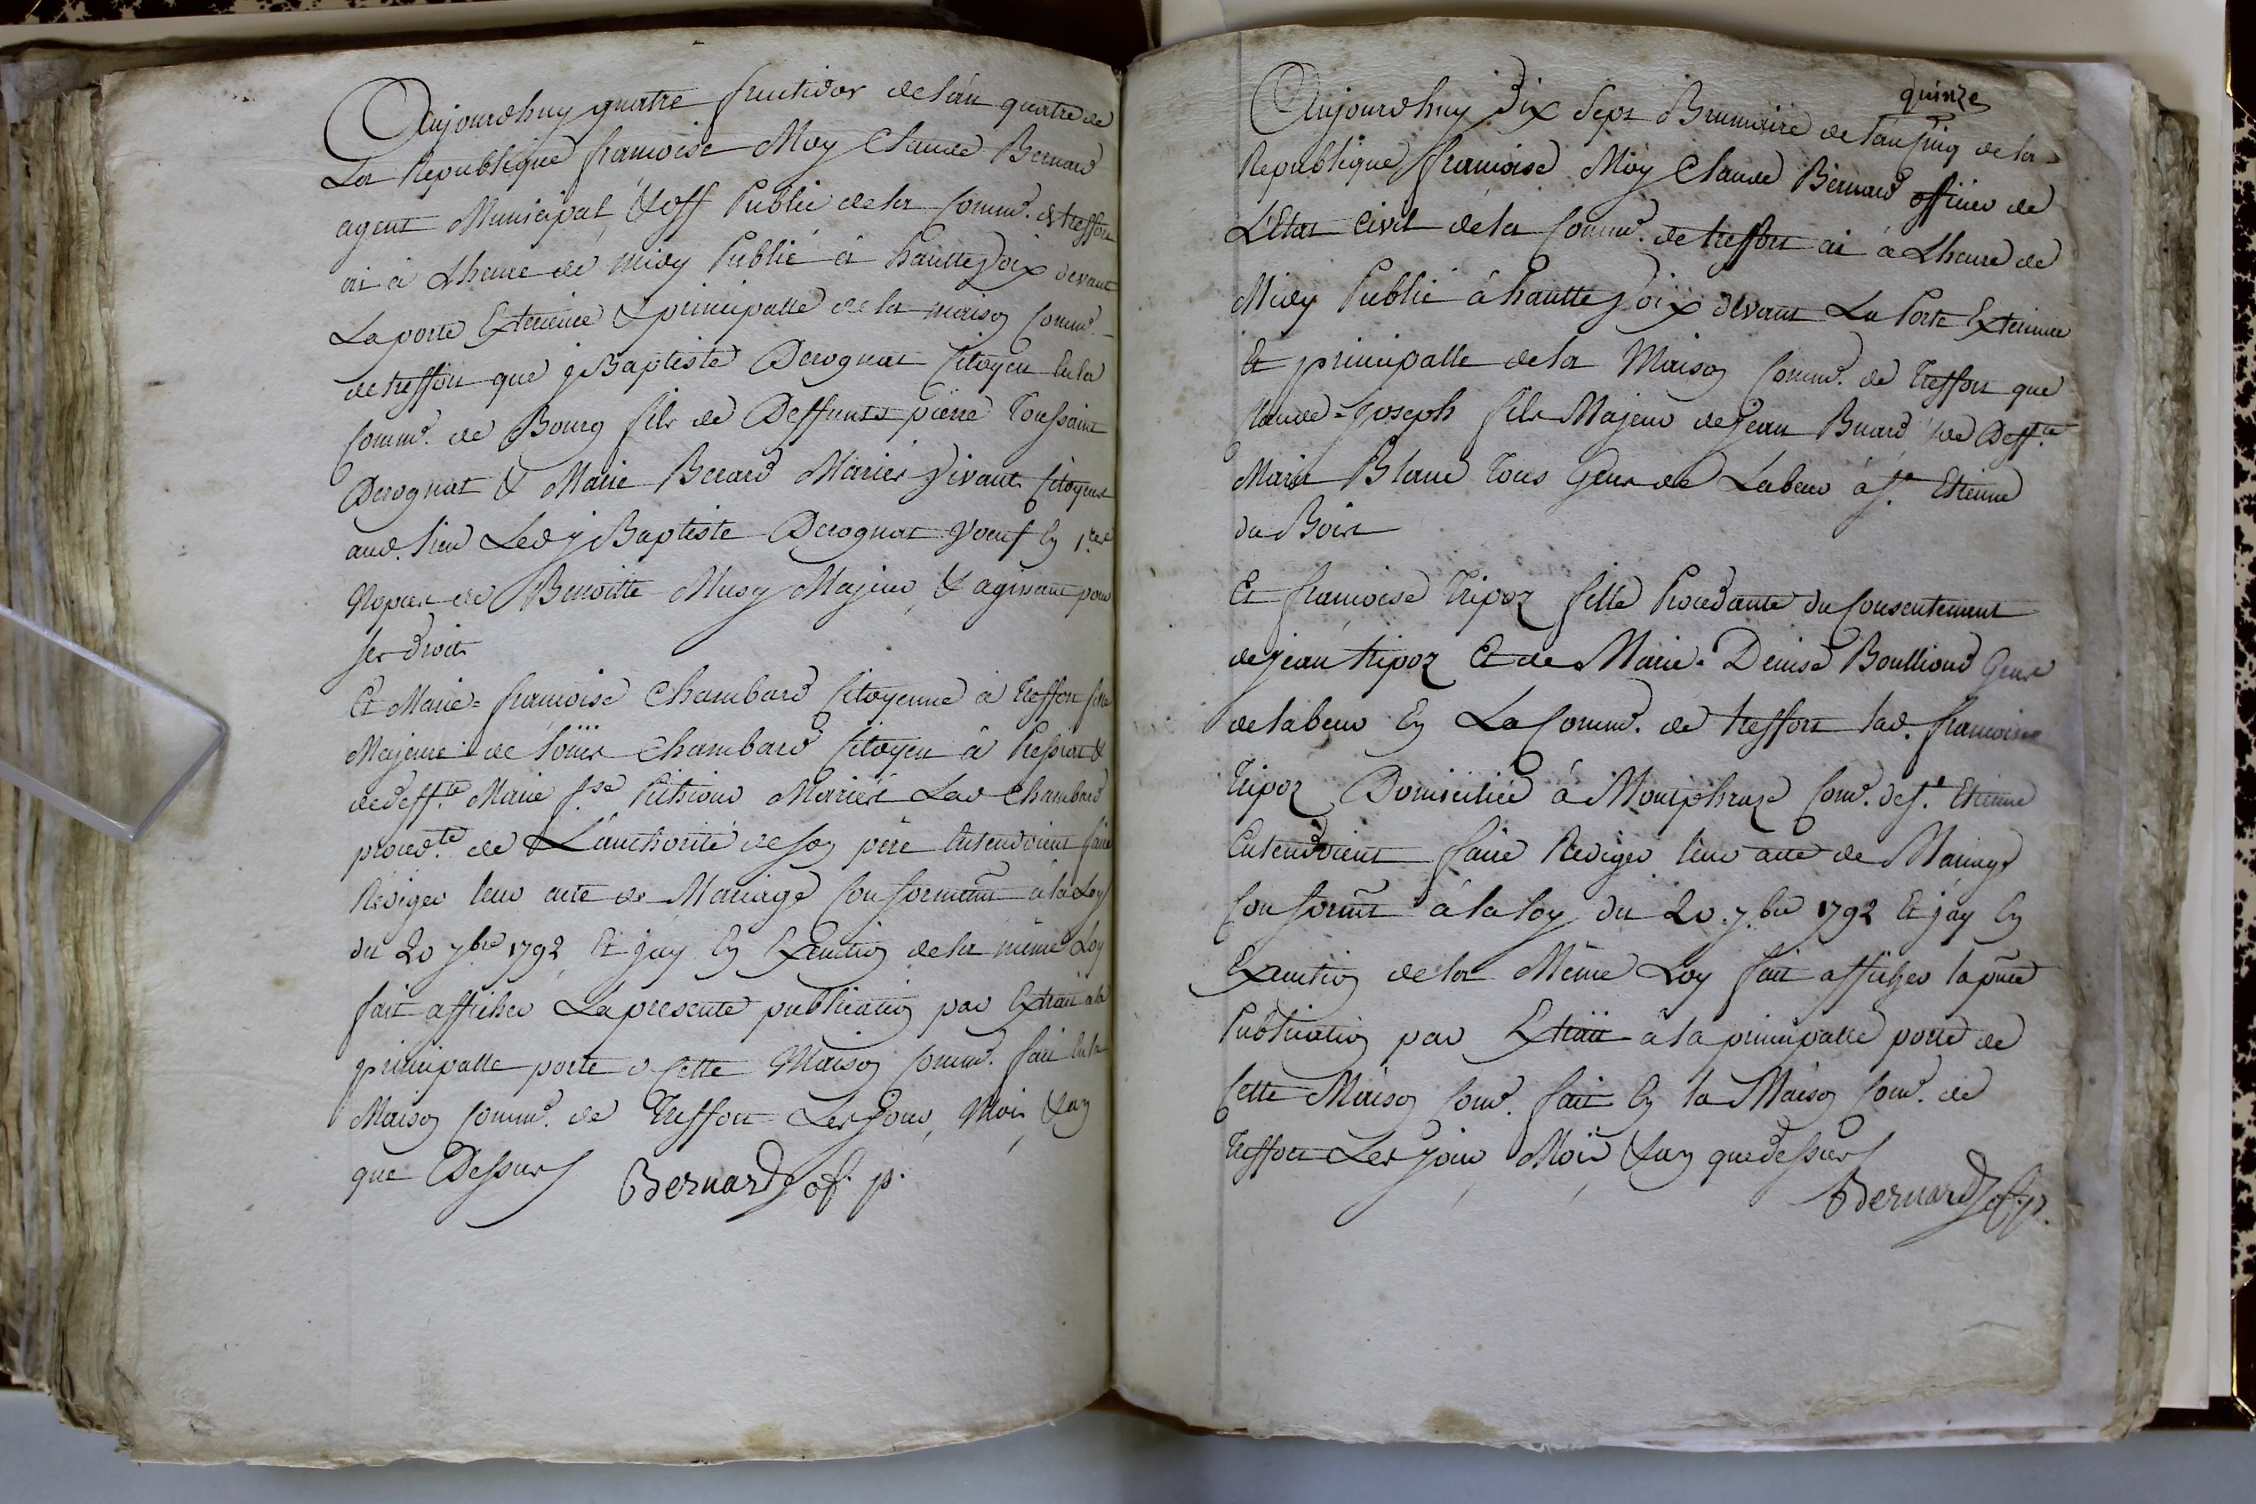 Aujourdhuy quatre fructidor de l'an quatre de
La Republique françoise Moy Claude Bernard
agent Municipal, & off Public de la Comm.e de treffort
ai à Lheure de midy Publié à hautte Voix devant
La porte Exterieure & principalle de la maison Comm.e
de treffort que j Baptiste Derognat Citoyen en la
Comm.e de Bourg fils de Deffunts pierre Toussaint
Derognat & Marie Berard Mariés Vivants Citoyens
aud. lieu Led j Baptiste Derognat Voeuf En 1.eres
Nopces de Benoitte Musy Majeur, & agissant pour
ses Droits
Et Marie=françoise Chambard Citoyenne à Treffort fille
Majeure de loüis Chambard Citoyen à Pressiat &
de deff.te Marie f.se Pithioud Mariés Lad Chambard
proced.te de L'authorité de son père Entendoient faire
Rediger leur acte de Mariage Conformem.t à la Loy
du 20 7bre 1792, Et jay En Execution de la même Loy
fait afficher La presente publication par Extrait à la
principalle porte d Cette Maison Comm.e fait en la
Maison Comm.e de Treffort Les Jour, Mois, & an
que Dessus Bernard of. p.
quinze
Aujourdhuy Dix Sept Brumaire de l'an Cinq de la
Republique françoise Moy Claude Bernard officier de
L'Etat Civil de la Comm.e de treffort ai à Lheure de
Midy Publié à hautte Voix devant La Porte Exterieure
Et principalle de la Maison Comm.e de Treffort que
Claude=Joseph fils Majeur de Jean Buard, & de Deff.te
Marie Blanc tous Gens de Labeur à S.t Etienne
du Bois
Et françoise Tripoz fille Procedante du Consentement
de jean tripoz Et de Marie=Denise Boullioud Gens
de labeur En La Comm.e de treffort lad. francoise
Tripoz Domiciliée à Montphraze Com.e de S.t Etienne
Entendoient faire Rediger leur acte de Mariage
Conform.t à la loy du 20. 7.bre 1792 Et jay En
Execution de la Même Loy fait afficher la pnte
Publication par Extrait à la principalle porte de
Cette Maison Com.e fait En la Maison Com.e de
Treffort Les jour, Mois, & an que dessus
Bernard of. p.